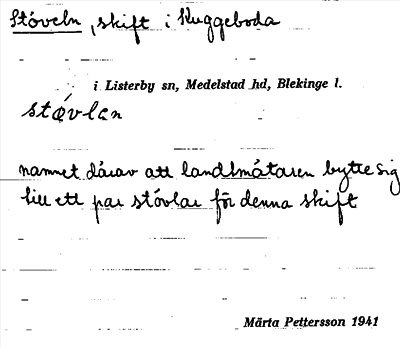 Stöveln, skift i Kuggeboda
i Listerby sn, Medelstad hd, Blekinge l.
stǿvlan
namnet därav att landtmätaren bytte sig
till ett par stövlar för denna skift
Märta Pettersson 1941